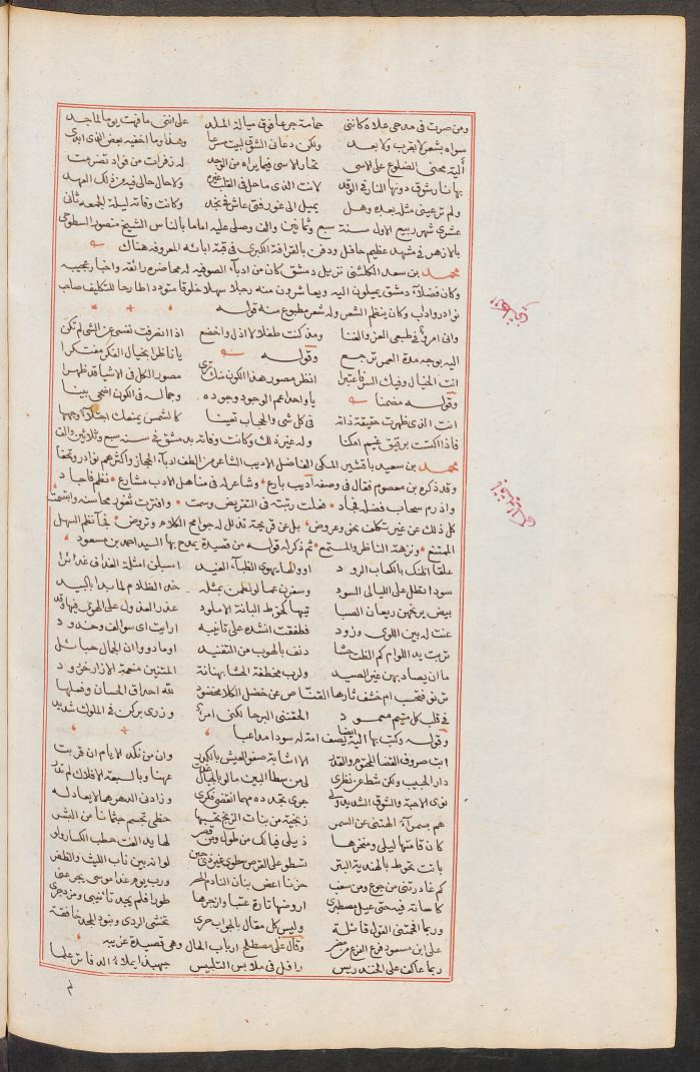 ومن صرت في مدحي علاه كانني حمامة جرعا فوق ميالة الملد على انني ما فهت يوما لماجد
سواه بشعر لا بقرب ولا بعد ولكن دعاني الشوق لبيت مسرعا وهذا وما اخفيه بعض الذي ابدي
ألية محني الضلوع على الاسى تحار الاسى فيما يراه من الوجد له زفرات من فواد تضرمت
بها نار شوق دونها النار في الوقد لانت الذي ما حل في القلب غيره ولا حال حالي فيه عن ذلك العهد
ولم تر عيني مثل بعده وهل يميل الى غور فتى عاش في نجد وكانت وفاته ليلة الجمعه ثاني
عشري شهر ربيع الاول سنة سبع وثمانين والف وصلى عليه اماما بالناس الشيخ منصور السطوحي
بالازهر في مشهد عظيم حافل ودفن بالقرافة الكبرى في قبة ابائه المعروفه هناك
محمد بن سعد الكلشني نزيل دمشق كان من ادبآء الصوفيه له محاضره رائقه واخبار عجيبه
وكان فضلآء دمشق يميلون اليه ويعاشرون منه رجلا سهلا خلوقا متوددا طارحا للتكليف صاحب
نوادر واداب وكان ينظم الشعر وله شعر مطبوع منه قوله
واني امرؤ في طبعي العز والغنا ومذ كنت طفلا لا اذل واخضع اذا انصرفت نفسي عن الشي لم تكن
اليه بوجه مدة العمر ترجع وقوله يا ناظرا بخيال الفكر مفتكرا
انت الخيال وفيك السر فاعتبرا انظر مصور هذا الكون منك ترى مصور الكل في الاشيا قد ظهرا
وقوله مضمنا يا واحدا عم الوجود وجوده وجماله في الكون اضحى بينا
انت الذي ظهرت حقيقة ذاته في كل شي والحجاب تعينا كالشمس يمنعك اجتلاؤك وجهها
فاذا اكتست برقيق غيم امكنا وله غير ذلك وكانت وفاته بدمشق في سنة سبع وثلاثين والف
محمد بن سعيد باقشير المكي الفاضل الاديب الشاعر من الطف ادبآء الحجاز واكثرهم نوادر وتحفا
وقد ذكره بن معصوم فقال في وصفه اديب بارع وشاعر له في مناهل الادب مشارع نظم فاجاد
واذرم سحاب فضله فجاد فعلت رتبته في القريض وسمت وافترت ثغور محاسنه وابتسمت
كل ذلك عن غير تكلف نحو وعروض بل عن قريحة تذلل له جوامح الكلام وتروض نجآ نظم السهل
الممتنع ونزهة الناظر والمستمع ثم ذكر له قوله من قصيدة يمدح بها السيد احمد بن مسعود
علقا الكعاب الرود اوولعا يهوى الظبآء الغيد اسبلن امثلة الغداف غدائرا
سودا تظل على الليالي السود وسفرن عما لو لطمن بمثله خد الظلام لما بدا باكيد
بيض يرنحهن ريعان الصبا تيها كخوط البانة الاملود عذر العذول على الهوى فيها وقد
عنت له بين اللوى وزرود فطفقت انشده على تانيبه ارايت اي سوالف وخدود
تربت يد اللوام كم القت حشا دنف بالهوب من التفنيد او ما دروا ان الجمال حبائل
ما ان يصاد بهن غير الصيد ولرب مخطفة الحشا بهنانة المتنين منعمة الازار خرود
ترنو فتحسب ام خشف ثارها القناص عن خضل الكلا مخضود لله احداق الحسان وفعلها
في قلب كل متيم معمود الحقنني البرحا لكني امرؤ وزري بركن في الملوك شديد
وقوله وكتب بها اليه ايضا يصف امة له سودا مداعبا
ابت صروف القضا المحتوم والقدر الا اشابة صفو العيش بالكدر وان من نكد الايام ان قربت
دار الحبيب ولكن شط عن نظري لي من سطا البين ما لو بالجبال غدت عهنا وبالسبعة الافلاك لم تدر
نوى الاحبة والشوق الشديد ولي جوى تجدده مهما انقضى فكري وزادني الدهر هما لا يعادله
هم بسمرآء الهتني عن السمر زنجية من بنات الزنج تحسبها حظي تجسم جثمانا من البشر
كان قامتها ليلى وشعرها ذيلي فيالك من طول ومن قصر لها يد الفت حطب الكسار ولو
باتت تحوط بالهندية البتر تسطو على القرص سطوي غير ذي جبن لوانه بين ناب الليث والظفر
كم غادرتني من جوع ومن سغب حزنا اعض بنان النادم الحصر ورب يوم غدا موسى يجرعني
كاساته فيه حتى عيل مصطبري اروضها تارة عتبا وازجرها طورا فلم يجد تانيبي ومزدجري
وربما الجتني القول قائلة وليس كل مقال بالجواب حري تخشى الردى وبنود المجد خافقة
على ابن مسعود فرع الفرع من مضر وقال على مصطلح ارباب الحال وهي قصيدة غريبه
ربما عاكف على الخندريس رافل في ملابس التلبيس جهبذ املآء الدفاتر علما